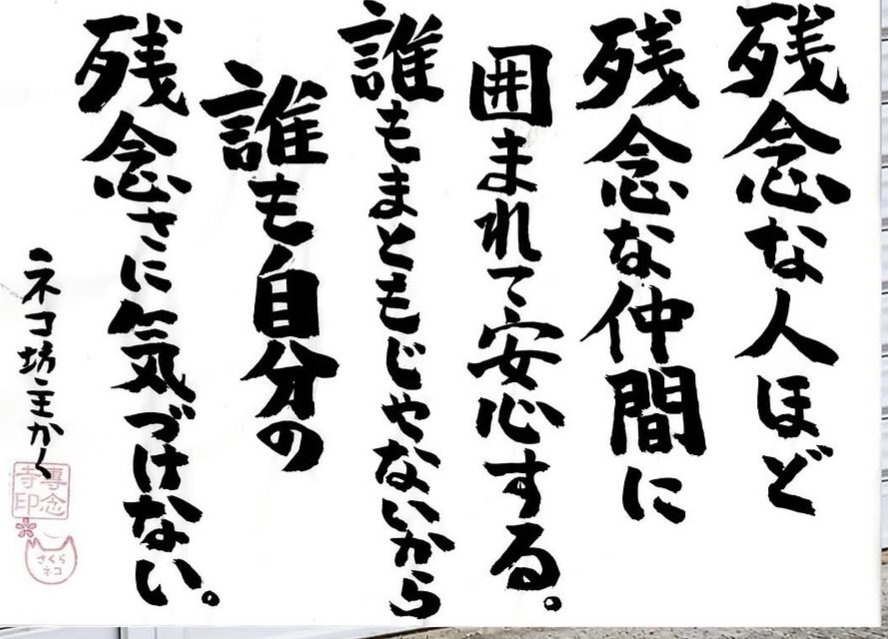 残念な人ほど
残念な仲間に
囲まれて安心する。
誰もまともじゃないから
誰も自分の
残念さに気づけない。
ネコ坊主かく
専念
寺印
さくら
ネコ